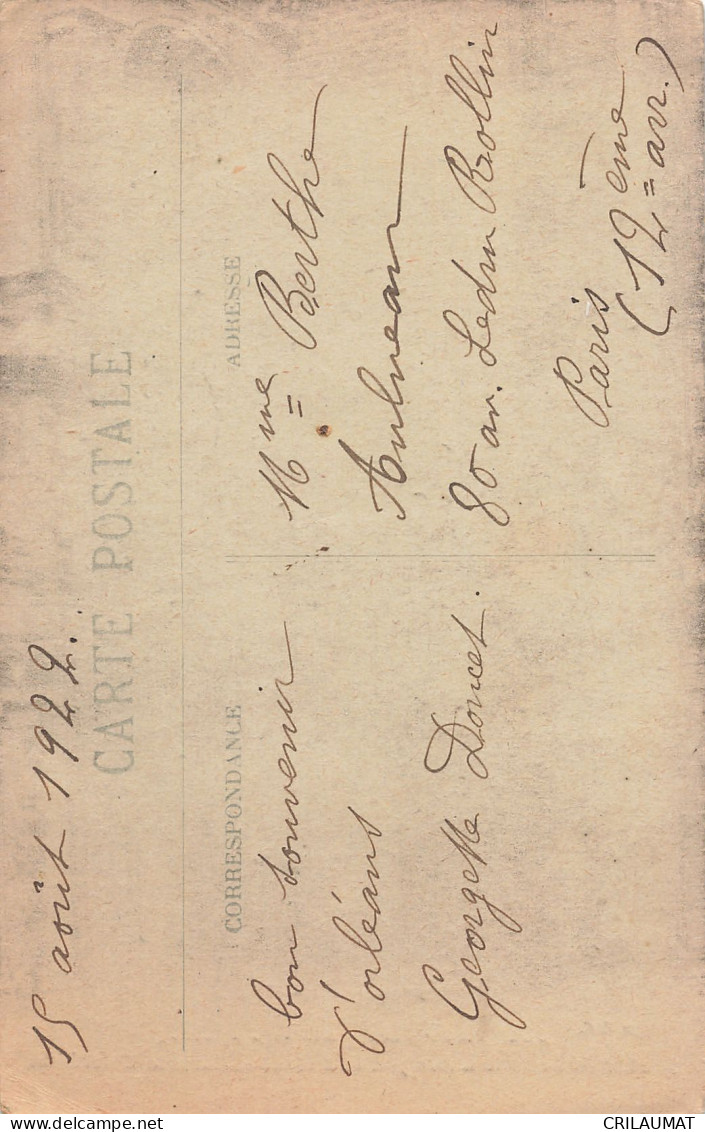 15 août 1922.
CARTE POSTALE
CORRESPONDANCE
bon souvenir
d'orléans
Georgette Doucet.
ADRESSE
Mme Berthe
Aulneau
80 av. Ledru Rollin
Paris
(12ème arr.)
CRILAUMAT